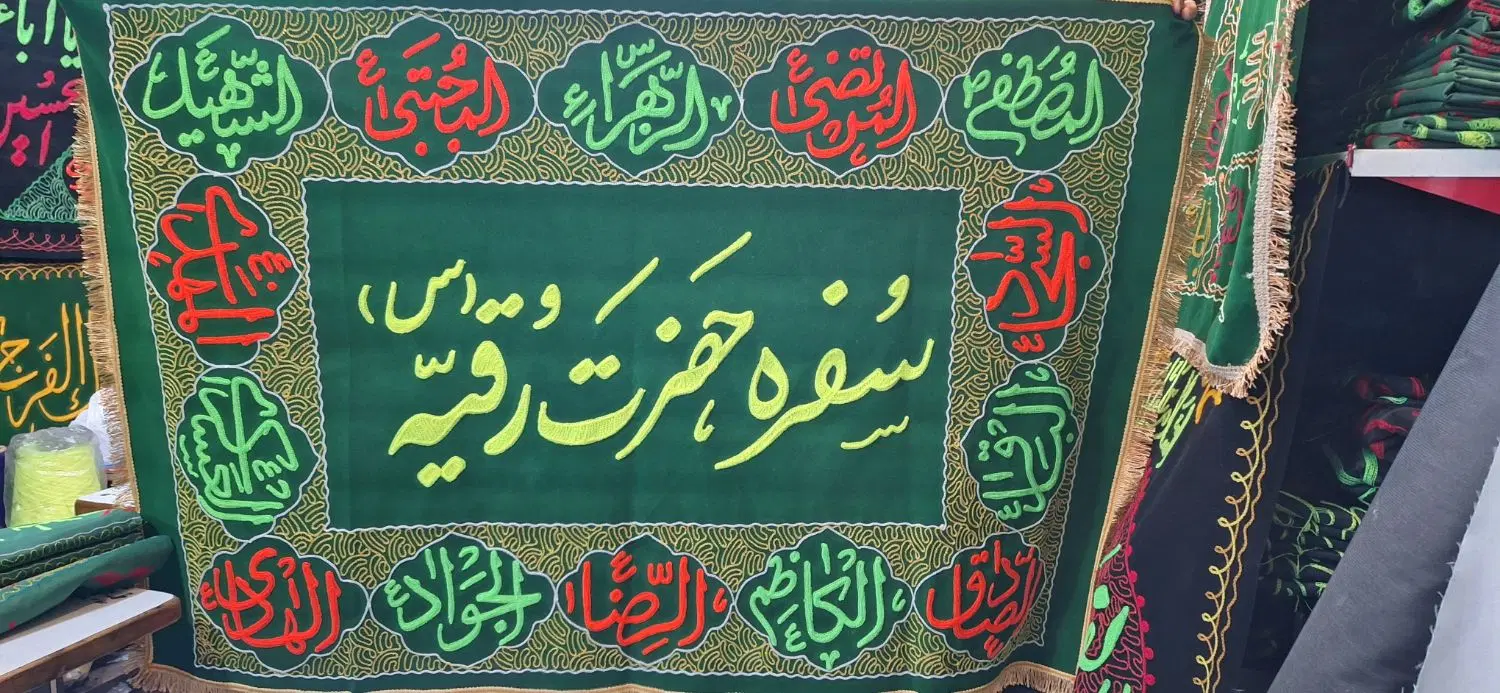 المصطفی
المرتضی
الزهراء
المجتبی
الشهید
السجاد
الباقر
الصادق
الکاظم
الرضا
الجواد
الهادی
العسکری
المهدی
سفره حضرت رقیّه (س)
یا ابا
الفرج